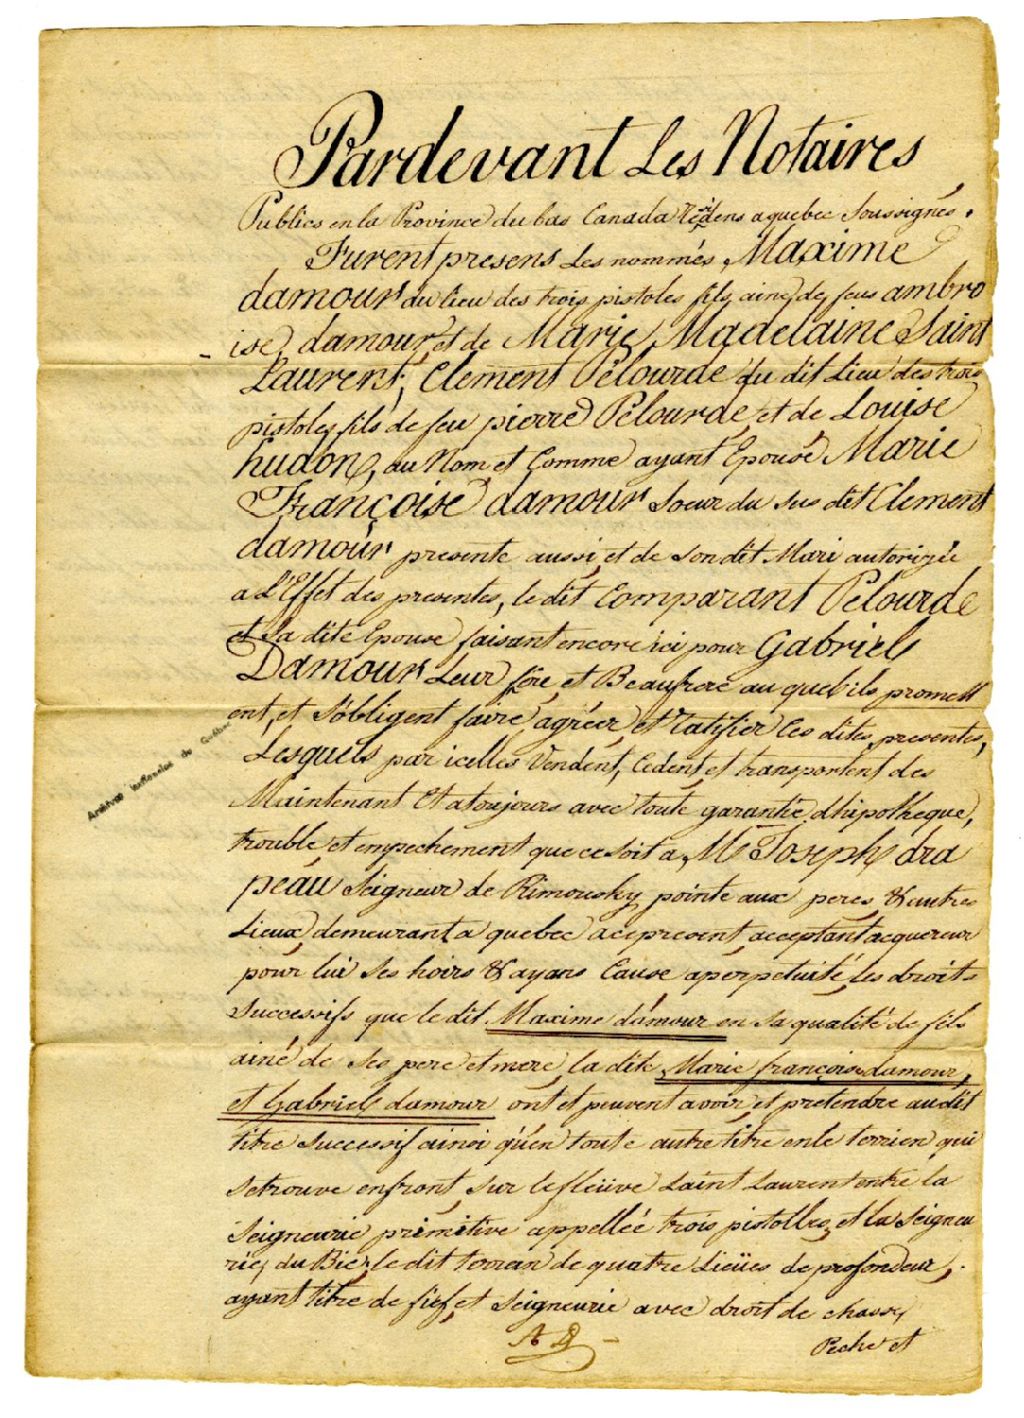 Pardevant Les Notaires
Publics en la Province du bas Canada residens a quebec Soussignés.
Furent presens Les nommés Maxime
damour du lieu des trois pistoles fils ainé de feus ambro
ise damour et de Marie Madelaine Saint
Laurent, Clement Pélourde du dit Lieu des trois
pistoles fils de feu pierre Pélourde et de Louise
hudon, au Nom et Comme ayant Epousé Marie
Françoise damour Soeur du sus dit Clement
damour presente aussi et de son dit Mari autorizée
a L'Effet des presentes, le dit Comparant Pélourde
et sa dite Epouse faisant encore ici pour Gabriel
Damour Leur frere et Beaufrere au quel ils promett
ent, et s'obligent faire agréer et Ratifier Ces dites presentes,
Lesquels par icelles Vendent, Cedent et transportent des
Maintenant Et a toujours avec toute garantie d'hipotheque,
trouble et empechement que ce soit a Mr Joseph dra
peau Seigneur de Rimousky pointe aux peres & autres
Lieux demeurant a quebec a ce present acceptant acquereur
pour lui ses hoirs & ayans Cause a perpetuité, les droits
Successifs que le dit Maxime d'amour en sa qualité de fils
ainé de ses pere et mere, la dite Marie françoise damour,
et Gabriel damour ont et peuvent avoir et pretendre au dit
titre Successif ainsi qu'en toute autre titre en le terrien qui
se trouve en front sur le fleüve Saint Laurent entre la
Seigneurie primitive appellée trois pistolles, et la Seigneu
rie du Bic, le dit terrain de quatre Lieües de profondeur,
ayant titre de fief et Seigneurie avec droit de chasse,
Peche et
AD
Archives nationales du Québec